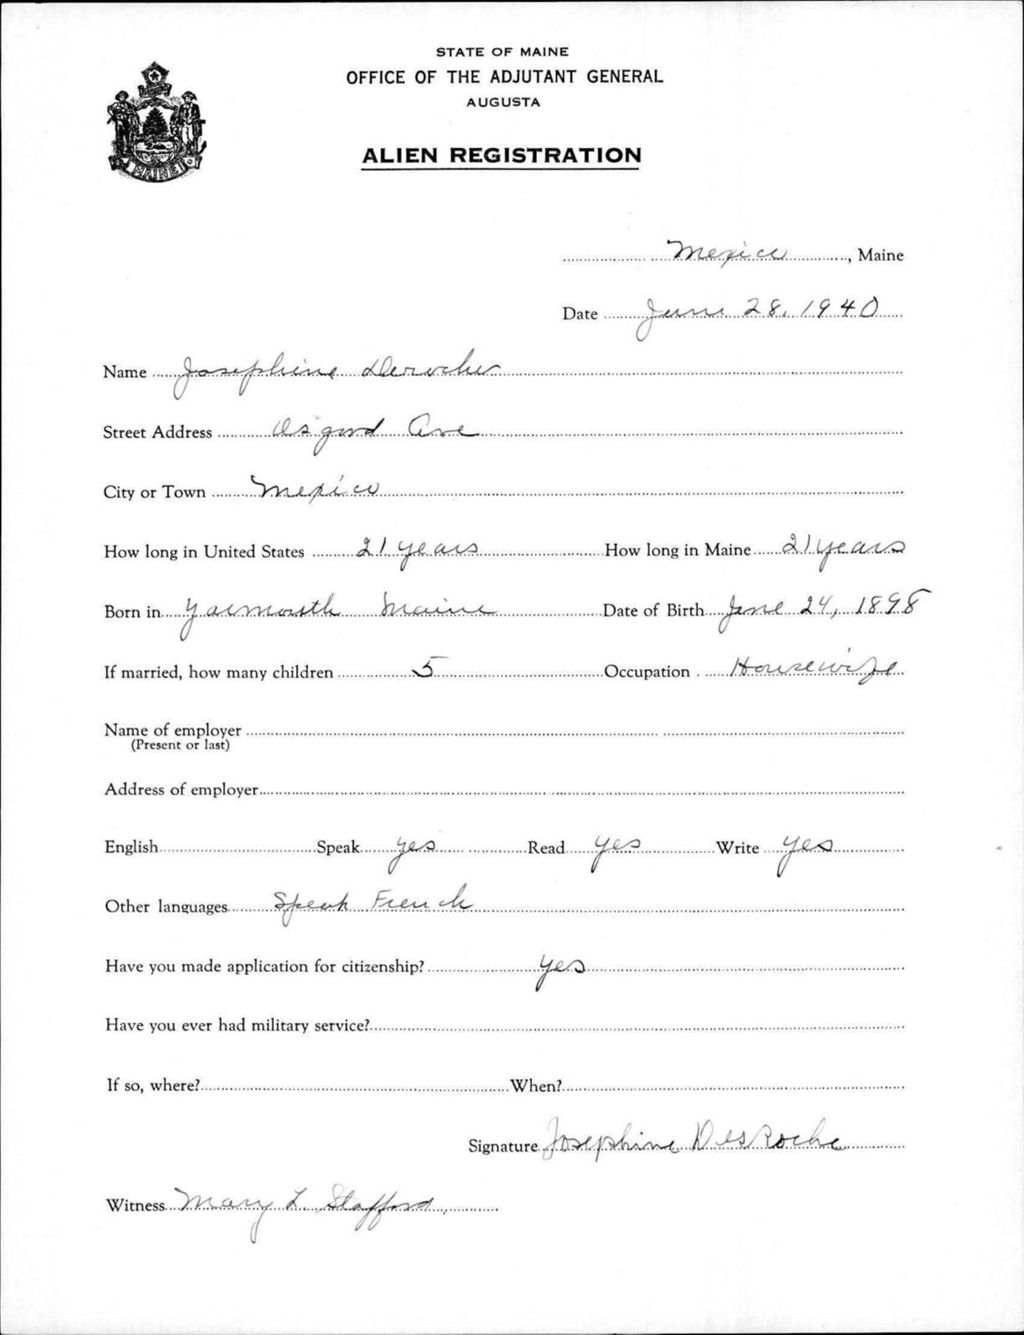 STATE OF MAINE
OFFICE OF THE ADJUTANT GENERAL
AUGUSTA
ALIEN REGISTRATION
MAINE
Mexico, Maine
Date June 28, 1940
Name Josephine Derocher
Street Address Osgood Ave
City or Town Mexico
How long in United States 21 years How long in Maine 21 years
Born in Yarmouth Maine Date of Birth June 24, 1898
If married, how many children 5 Occupation Housewife
Name of employer
(Present or last)
Address of employer
English Speak yes Read yes Write yes
Other languages Speak French
Have you made application for citizenship? yes
Have you ever had military service?
If so, where? When?
Signature Josephine DesRoche
Witness Mary L. Stafford